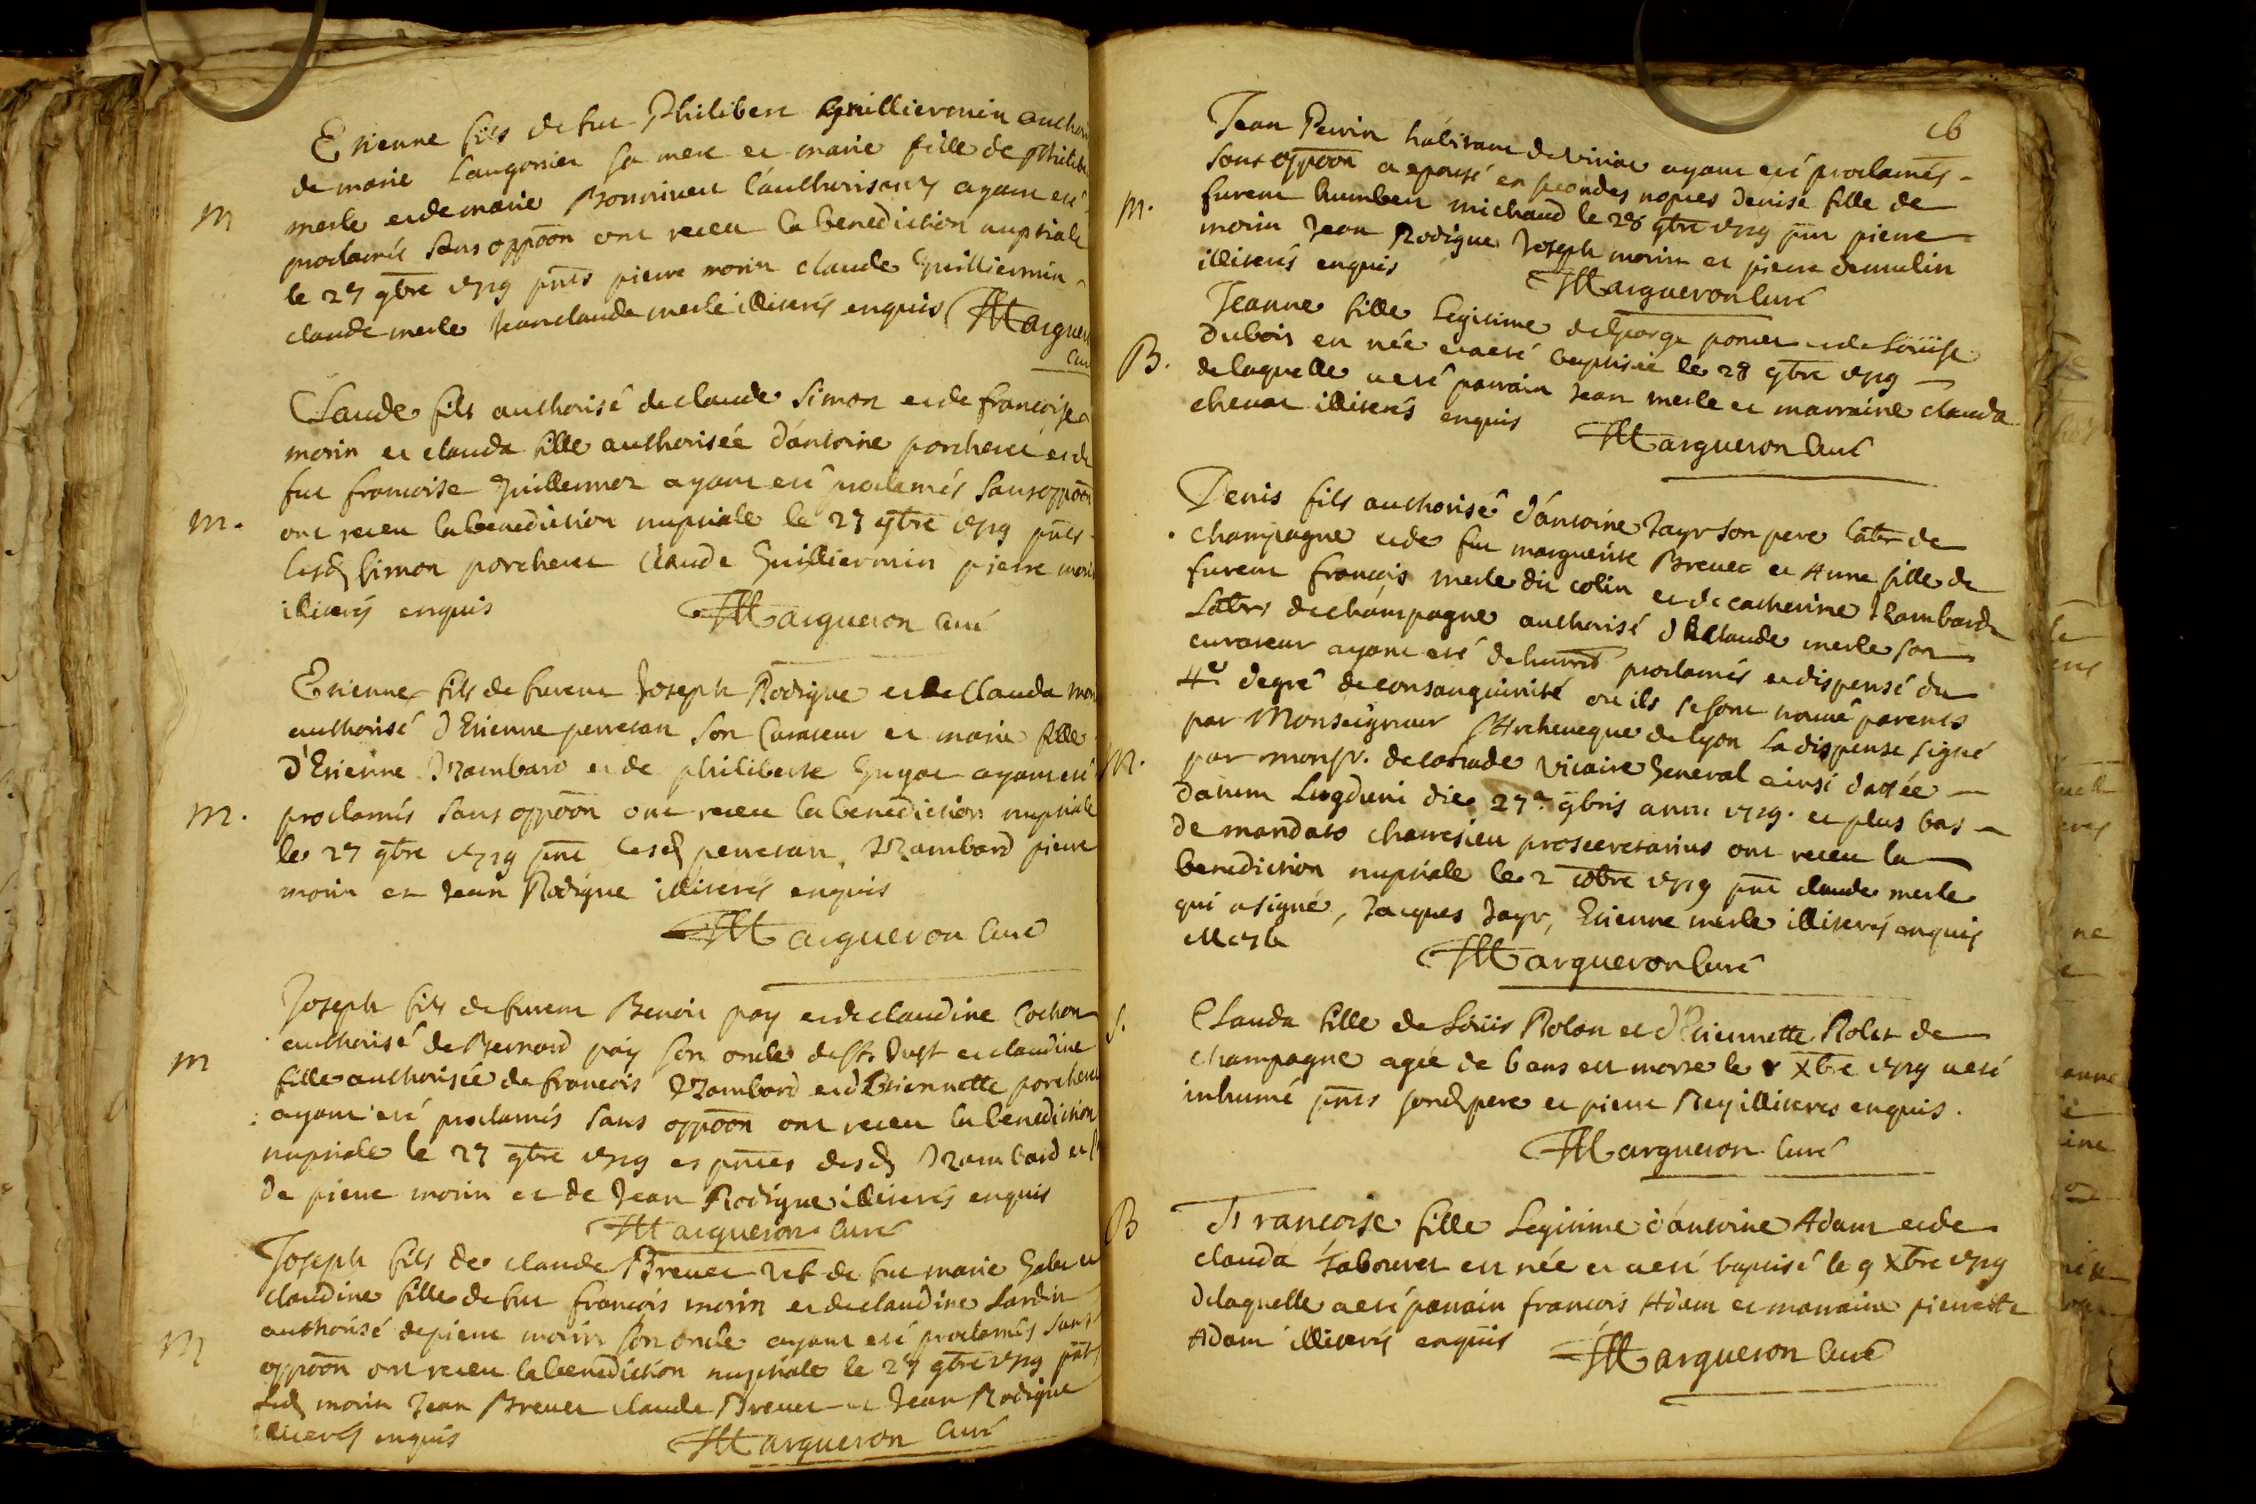 Etienne fils de feu Philibert Guilliermin author
de marie Laugonier sa mere et marie fille de phili
merle et de marie Bonnivert l'authorisant ayant eté
M
proclamés sans oppōon ont receu la benediction nuptiale
le 27 9bre 1719 pnts pierre morin claude Guilliermin
claude merle Jean claude merle illiterés enquis Margueron
Curé
Claude fils authorisé de claude Simon et de francoise
morin et clauda fille authorisée d'antoine porcheret et de
feu francoise Guillermet ayant eté proclamés sans oppōon
M.
ont receu la benediction nuptiale le 27 9bre 1719 pnts
lesd Simon porcheret Claude Guilliermin pierre morin
illiterés enquis Margueron Curé
Etienne fils de furent Joseph Rodigue et de Clauda mor
authorisé d'Etienne perretan son Curateur et marie fille
d'Etienne Drambard et de philiberte Guyot ayant eté
M.
proclamés sans oppōon ont receu la benediction nuptiale
le 27 9bre 1719 pnt lesd perretan, Drambard pierre
morin et Jean Rodigue illiterés enquis
Margueron Curé
Joseph fils de furent Benoit pay et de claudine Cochon
authorisé de Bernard pay son oncle de St. Just et claudine
M
fille authorisée de francois Drambard et d'Etiennette porcheret
ayant eté proclamés sans oppōon ont receu la benediction
nuptiale le 27 9bre 1719 es pnces desd Drambard et
de pierre morin et de Jean Rodigue illiterés enquis
Margueron Curé
Joseph fils de claude Brevet et de feu marie Gabet et
claudine fille de feu francois morin et de claudine Jardin
authorisé de pierre morin son oncle ayant eté proclamés sans
M
oppōon ont receu la benediction nuptiale le 27 9bre 1719 pnts
led morin Jean Brevet claude Brevet et Jean Rodigue
illiterés enquis Margueron Curé
16
Jean Perrin habitant de viriat ayant eté proclamés
sans oppōon a epousé en secondes nopces Denise fille de
M.
furent humbert michaud le 28 9bre 1719 pnt pierre
morin Jean Rodigue Joseph morin et pierre demulin
illiterés enquis Margueron Curé
Jeanne fille legitime de George poncet et de Loüise
B.
Dubois est née et a eté baptisée le 28 9bre 1719
de laquelle a eté parrain Jean merle et marraine clauda
chenat illiterés enquis Margueron Curé
Denis fils authorisé d'antoine Jayr son pere labr de
champagne et de feu marguerite Brevet et Anne fille de
furent francois merle dit colin et de catherine Drambard
labrs de champagne authorisé de Claude merle son
curateur ayant eté dehument proclamés et dispensé du
4e degré de consanguinité ou ils se sont trouvé parents
par Monseigneur l'Archeveque de lyon la dispense signé
M.
par monsr. de la vicaire General ainsi dattée
datum Lugduni die 27a 9bris anni 1719. et plus bas
de mandato prosecretarius ont receu la
benediction nuptiale le 2 Xbre 1719 pnt claude merle
qui a signé, Jacques Jayr, Etienne merle illiterés enquis
Merle Margueron Curé
S.
Clauda fille de Loüis Rolan et d'Etiennette Rolet de
champagne agée de 6 ans est morte le 8 Xbre 1719 a eté
inhumé pnts sond pere et pierre Rey illiteres enquis.
Margueron Curé
B
Francoise fille Legitime d'antoine Adam et de
clauda Tabouret est née et a eté baptisé le 9 Xbre 1719
de laquelle a eté parrain francois Adam et marraine pierrette
Adam illiterés enquis Margueron Curé